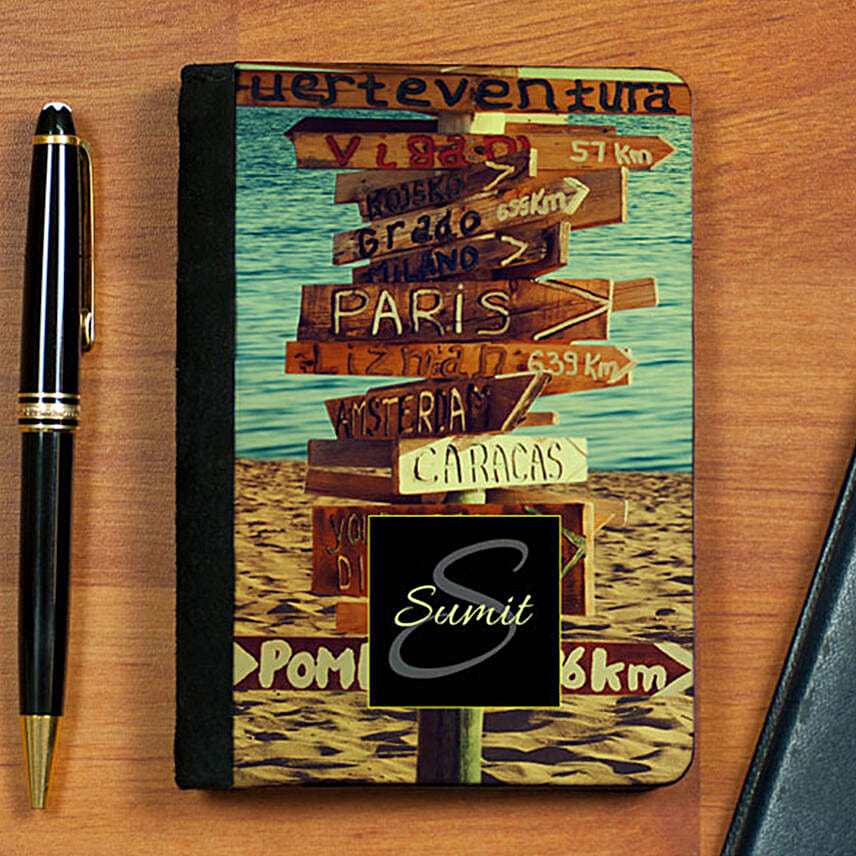 uerteventura
Vigan
57 Km
KOJSKO
Grado
655Km
MILANO
PARiS
Lizman
639 Km
AMSTERDAM
CARACAS
S
Sumit
6km